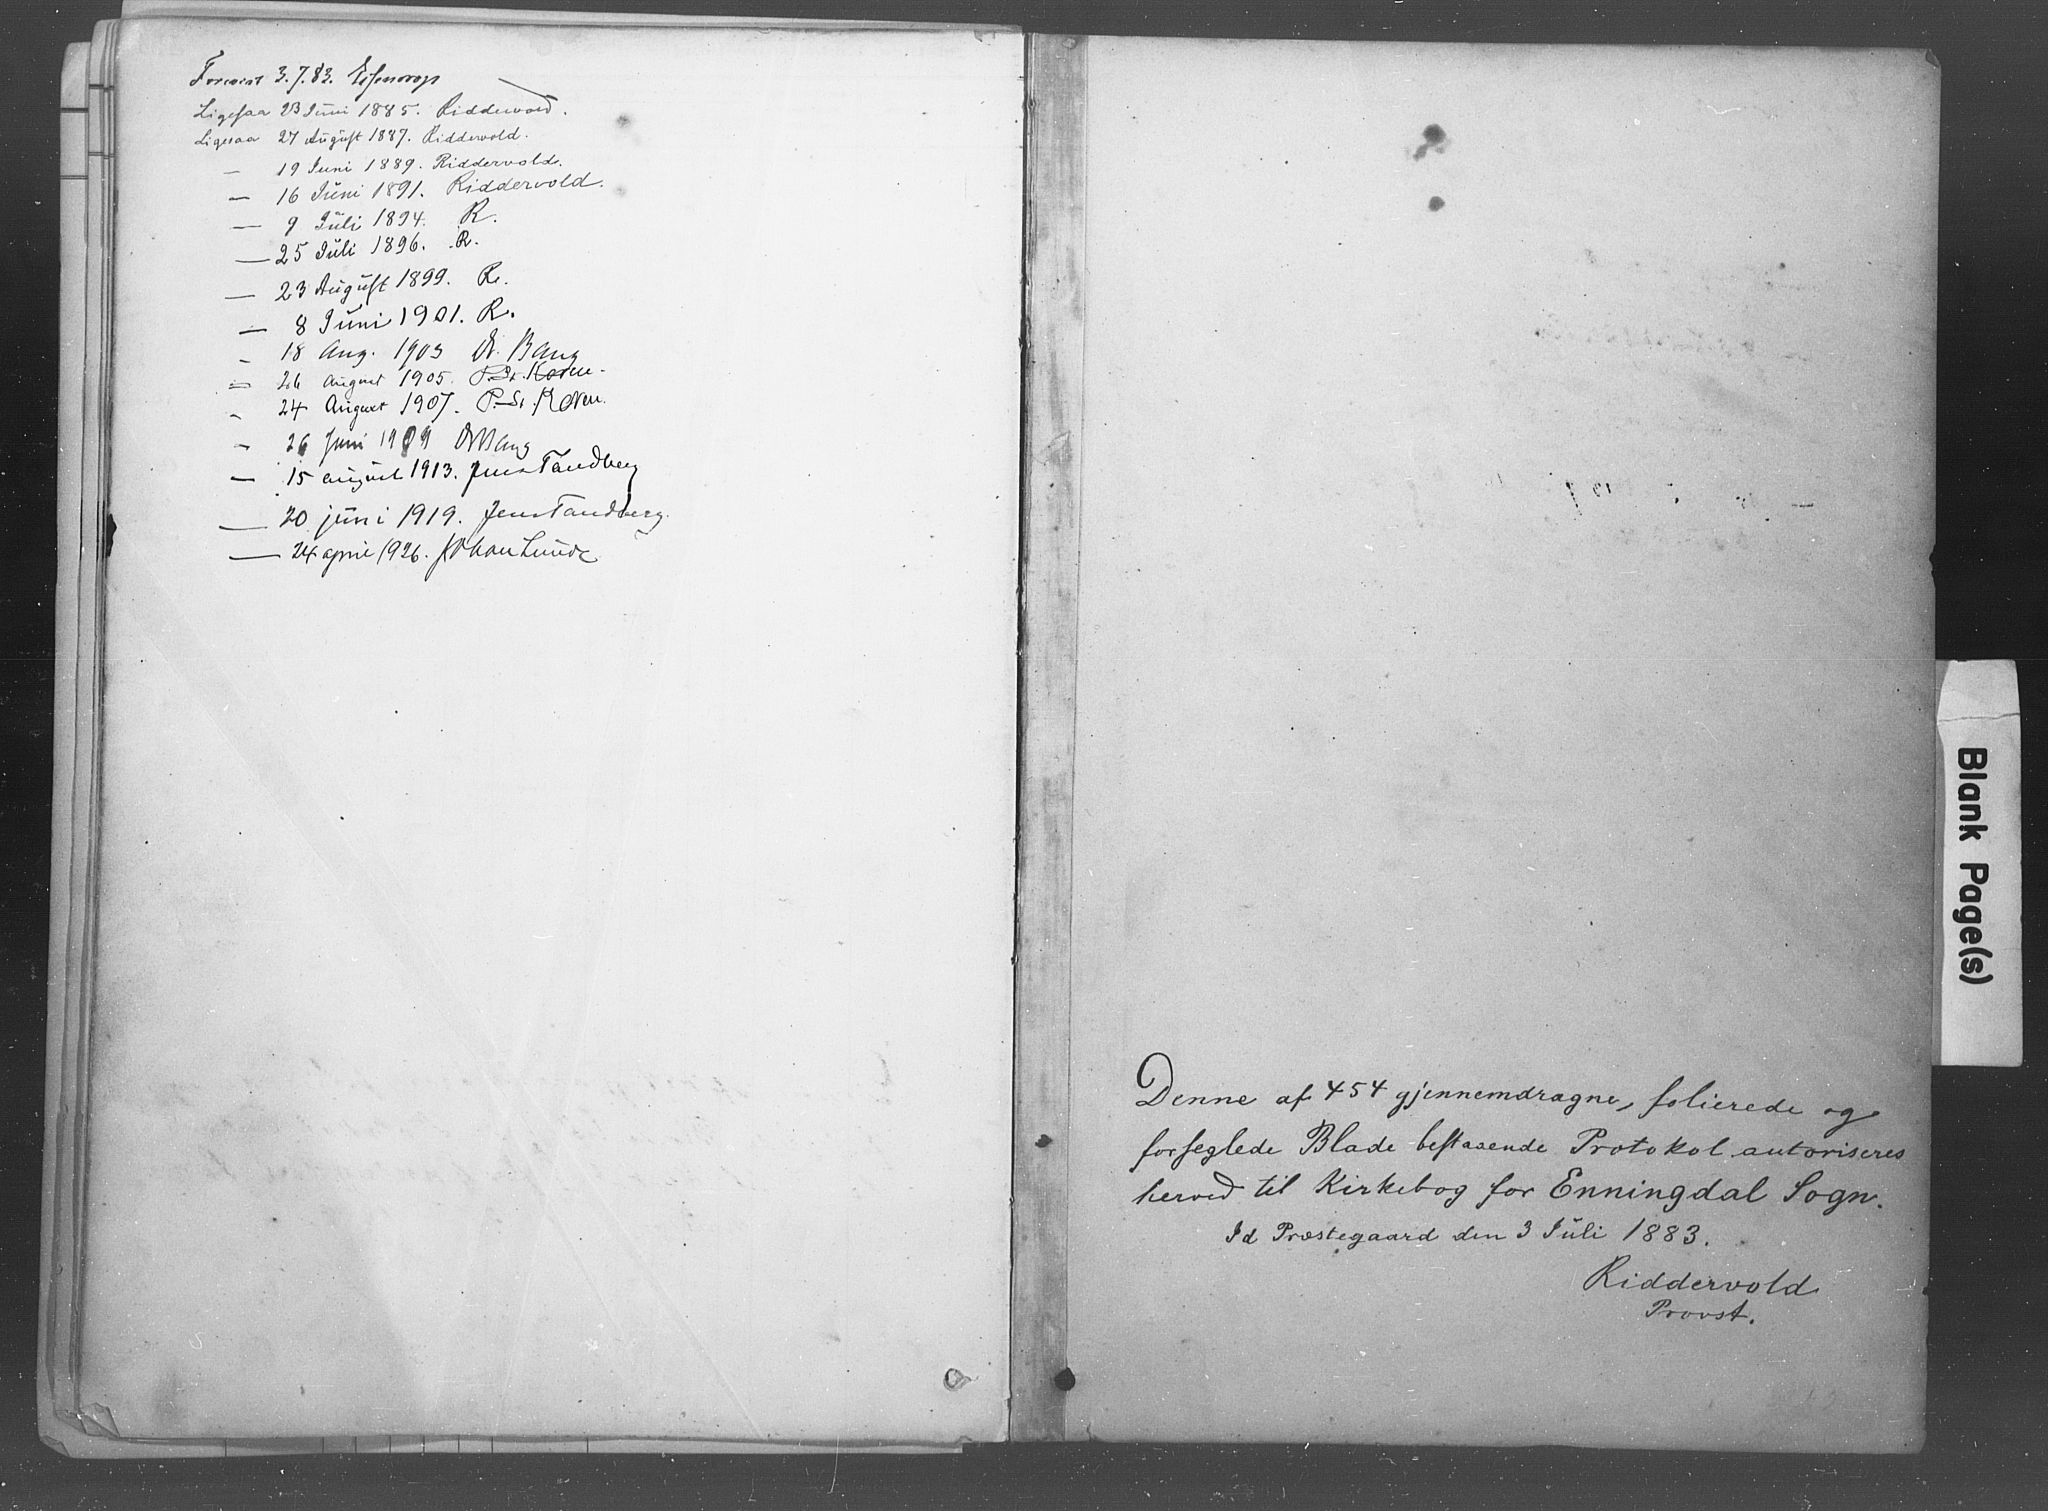 Forevist 3.7.83.
Ligesaa 23 Juni 1885. Riddervold.
Ligesaa 27 August 1887. Riddervold.
— 19 Juni 1889. Riddervold.
— 16 Juni 1891. Riddervold.
— 9 Juli 1894. R.
— 25 Juli 1896. R.
— 23 August 1899. R.
— 8 Juni 1901. R.
— 18 Aug. 1903 Dr. Bang
= 26 August 1905. P. St. Koren.
„ 24 August 1907. P. St. Koren.
„ 26 juni 1909 Bang
— 15 august 1913. Jens Tandberg
— 20 juni 1919. Jens Tandberg.
— 24 april 1926. Johan Lunde
Denne af 454 gjennemdragne, folierede og
forseglede Blade bestaaende Protokol autoriseres
herved til Kirkebog for Enningdal Sogn.
Id Præstegaard den 3 Juli 1883.
Riddervold
Provst.
Blank Page(s)